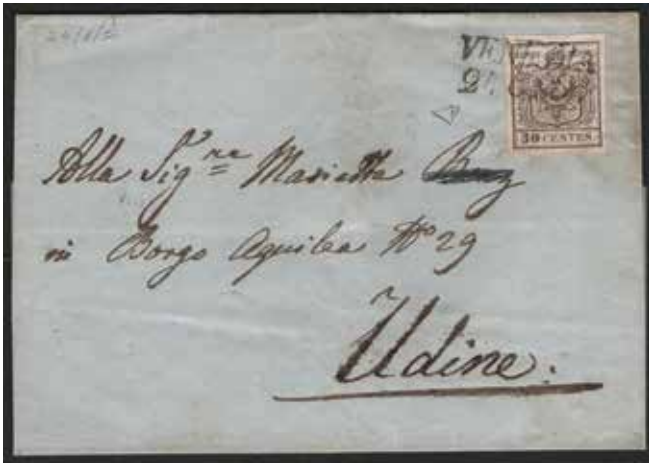 30 CENTES
Alla Sig.ra Marietta
in Borgo Aquilea No 29
Udine.